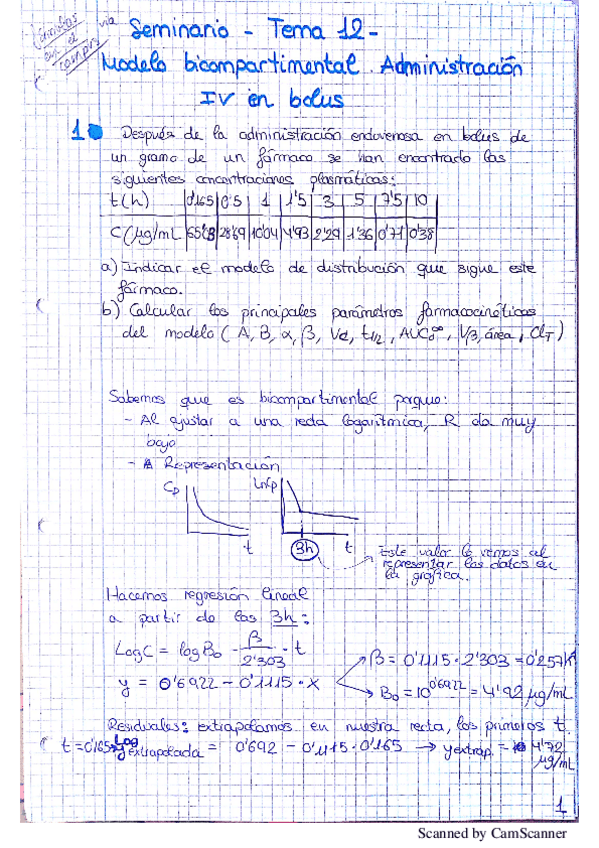 vía
Seminario - Tema 12 -
Modelo bicompartimental. Administración
IV en bolus
1 Después de la administración endovenosa en bolus de
un gramo de un fármaco se han encontrado las
siguientes concentraciones plasmáticas:
t (h) | 0'165 | 0'5 | 1 | 1'5 | 3 | 5 | 7'5 | 10
C (µg/mL | 65'03 | 28'69 | 10'04 | 4'93 | 2'29 | 1'36 | 0'71 | 0'38
a) Indicar el modelo de distribución que sigue este
fármaco.
b) Calcular los principales parámetros farmacocinéticos
del modelo (A, B, α, β, Vc, t1/2, AUC0∞, Vβ, área, ClT)
Sabemos que es bicompartimental porque:
- Al ajustar a una recta logarítmica, R da muy
bajo
- Representación
Cp LnCp
t 3h t
Este valor lo vemos al
representar los datos en
la gráfica.
Hacemos regresión lineal
a partir de las 3h:
Log C = log B0 - β/2'303 · t
y = 0'6922 - 0'1115 · x
β = 0'1115 · 2'303 = 0'257 h
B0 = 10^0'6922 = 4'92 µg/mL
Residuales: extrapolamos en nuestra recta, los primeros t.
t = 0'165 Log y extrapolada = 0'692 - 0'1115 · 0'165 → y extrap. = 4'72
µg/mL
1
Scanned by CamScanner